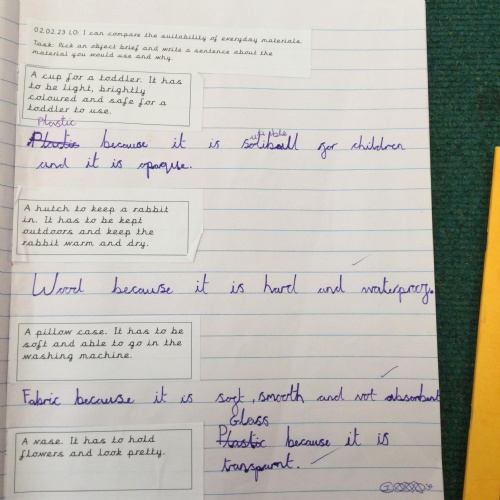 02.02.23 LO: I can compare the suitability of everyday materials
Task: Pick an object brief and write a sentence about the
material you would use and why.
A cup for a toddler. It has
to be light, brightly
coloured and safe for a
toddler to use.
Plastic
Plastic because it is for children
and it is opaque.
A hutch to keep a rabbit
in. It has to be kept
outdoors and keep the
rabbit warm and dry.
Wood because it is hard and waterproof.
A pillow case. It has to be
soft and able to go in the
washing machine.
Fabric because it is soft, smooth and not absorbent
Glass
A vase. It has to hold
flowers and look pretty.
Plastic because it is
transparent.